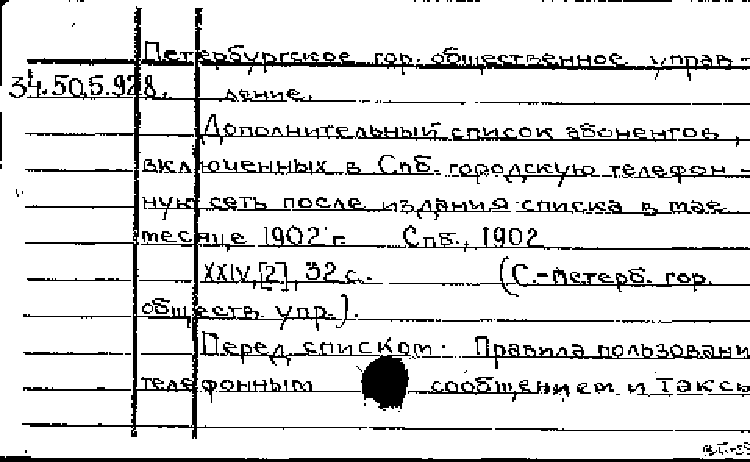 Петербургское гор. общественное управ-
34.50.5.928.
ление.
Дополнительный список абонентов,
включенных в Спб. городскую телефон-
ную сеть после издания списка в мае
месяце 1902 г. Спб., 1902
XXIV, [2], 32 с. (С.-Петерб. гор.
обществ. упр.).
Перед списком: Правила пользовани
телефонным сообщением и Таксы